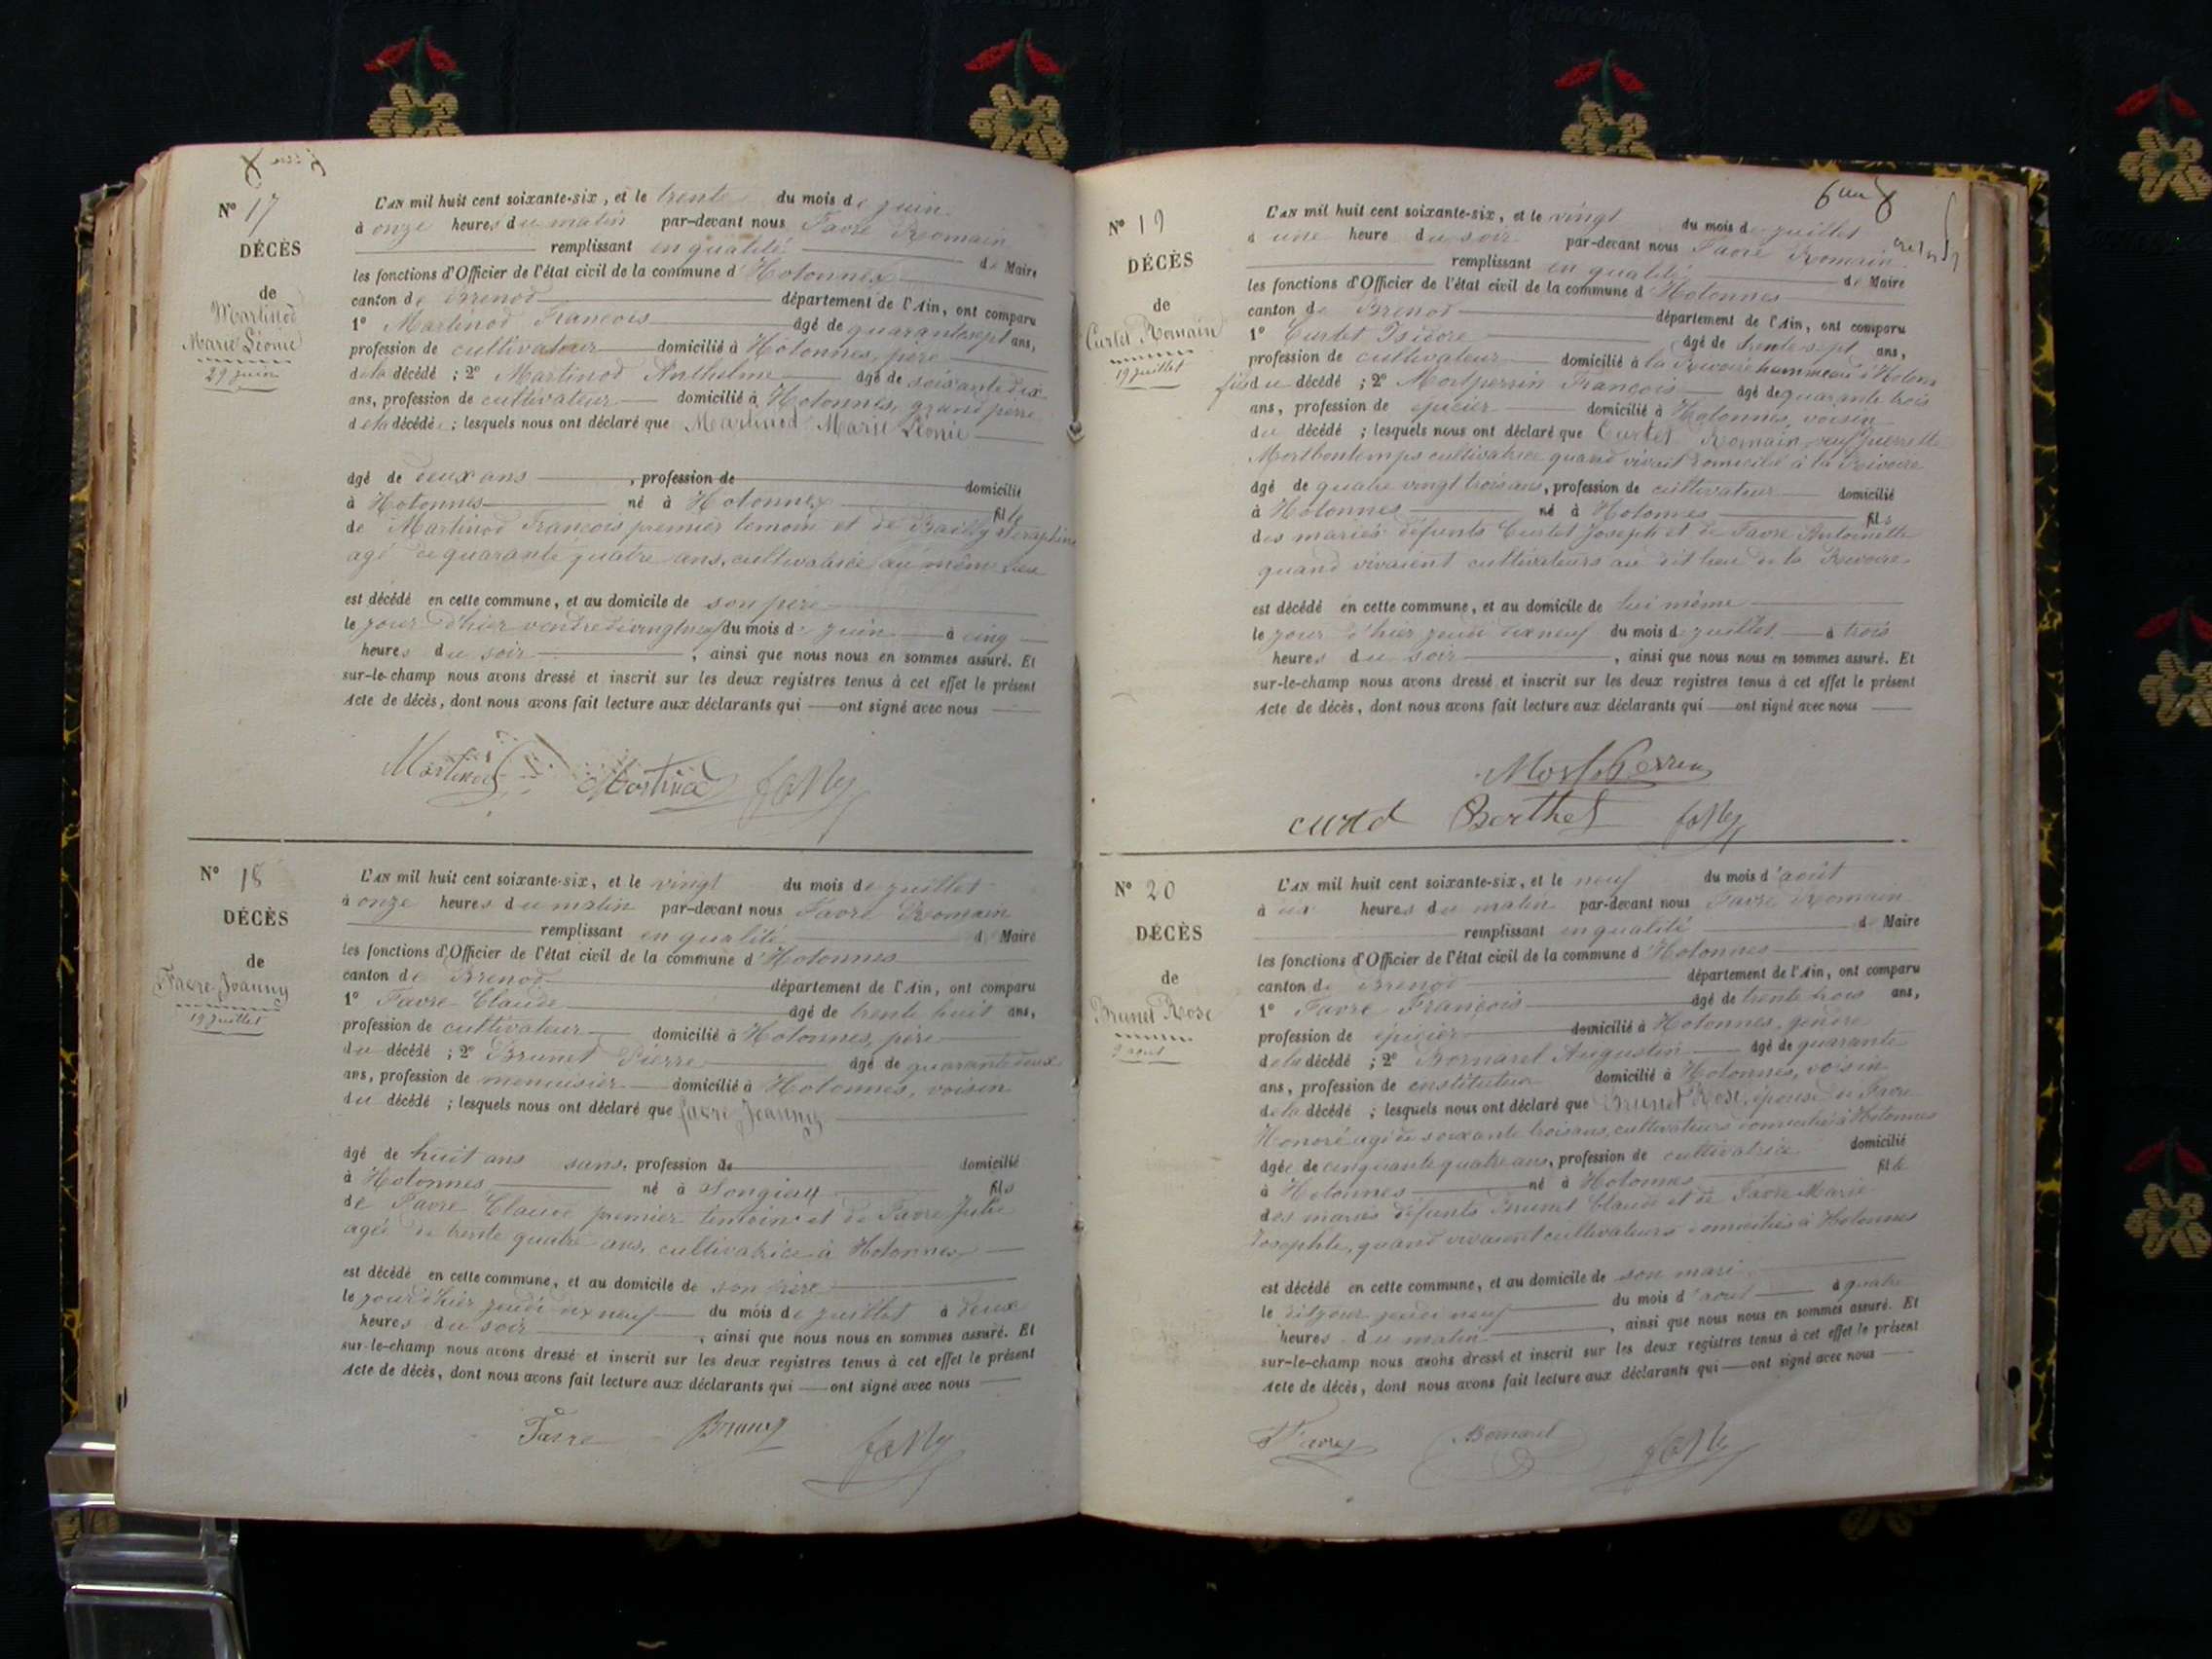 N° 17
DÉCÈS
de
Martinod
Marie Léonie
29 juin
L'AN mil huit cent soixante-six, et le trente du mois de juin
à onze heures du matin par-devant nous Favre Romain
remplissant en qualité de Maire
les fonctions d'Officier de l'état civil de la commune d'Hotonnes
canton de Brenod département de l'Ain, ont comparu
1° Martinod François âgé de quarante sept ans,
profession de cultivateur domicilié à Hotonnes, père
de la décédé ; 2° Martinod Anthelme âgé de soixante dix
ans, profession de cultivateur domicilié à Hotonnes, grand père
de la décédée ; lesquels nous ont déclaré que Martinod Marie Léonie
âgé de deux ans, profession de domicilié
à Hotonnes né à Hotonnes fille
de Martinod François premier temoin et de Brailly Séraphine
agé de quarante quatre ans, cultivatrice au même lieu
est décédé en cette commune, et au domicile de son père
le jour d'hier vendredi vingt neuf du mois de juin à cinq
heures du soir, ainsi que nous nous en sommes assuré. Et
sur-le-champ nous avons dressé et inscrit sur les deux registres tenus à cet effet le présent
Acte de décès, dont nous avons fait lecture aux déclarants qui ont signé avec nous
Martinod Martinod
N° 18
DÉCÈS
de
Favre Joanny
19 juillet
L'AN mil huit cent soixante-six, et le vingt du mois de juillet
à onze heures du matin par-devant nous Favre Romain
remplissant en qualité de Maire
les fonctions d'Officier de l'état civil de la commune d'Hotonnes
canton de Brenod département de l'Ain, ont comparu
1° Favre Claude âgé de trente huit ans,
profession de cultivateur domicilié à Hotonnes, père
du décédé ; 2° Brunet Pierre âgé de quarante deux
ans, profession de menuisier domicilié à Hotonnes, voisin
du décédé ; lesquels nous ont déclaré que favre Joanny
âgé de huit ans sans, profession de domicilié
à Hotonnes né à Songieu fils
de Favre Claude premier temoin et de Favre Julie
agée de trente quatre ans, cultivatrice à Hotonnes
est décédé en cette commune, et au domicile de son père
le jour d'hier jeudi dix neuf du mois de juillet à deux
heures du soir, ainsi que nous nous en sommes assuré. Et
sur-le-champ nous avons dressé et inscrit sur les deux registres tenus à cet effet le présent
Acte de décès, dont nous avons fait lecture aux déclarants qui ont signé avec nous
Favre Brunet
N° 19
DÉCÈS
de
Curtet Romain
19 juillet
L'AN mil huit cent soixante-six, et le vingt du mois de juillet
à une heure du soir par-devant nous Favre Romain
remplissant en qualité de Maire
les fonctions d'Officier de l'état civil de la commune d'Hotonnes
canton de Brenod département de l'Ain, ont comparu
1° Curtet Isidore âgé de trente sept ans,
profession de cultivateur domicilié à la Rivoire hammeau d'Hotonn
fils du décédé ; 2° Mortperrin François âgé de quarante trois
ans, profession de épicier domicilié à Hotonnes, voisin
du décédé ; lesquels nous ont déclaré que Curtet Romain, veuf pierrette
Mortbontemps cultivatrice quand vivait domicilié à la Rivoire
âgé de quatre vingt trois ans, profession de cultivateur domicilié
à Hotonnes né à Hotonnes fils
des mariés défunts Curtet Joseph et de Favre Antoinette
quand vivaient cultivateurs au dit lieu de la Rivoire
est décédé en cette commune, et au domicile de lui même
le jour d'hier jeudi dix neuf du mois de juillet à trois
heures du soir, ainsi que nous nous en sommes assuré. Et
sur-le-champ nous avons dressé et inscrit sur les deux registres tenus à cet effet le présent
Acte de décès, dont nous avons fait lecture aux déclarants qui ont signé avec nous
Mortperrin
Berthet
N° 20
DÉCÈS
de
Brunet Rose
9 aout
L'AN mil huit cent soixante-six, et le neuf du mois d'août
à dix heures du matin par-devant nous Favre Romain
remplissant en qualité de Maire
les fonctions d'Officier de l'état civil de la commune d'Hotonnes
canton de Brenod département de l'Ain, ont comparu
1° Favre François âgé de trente trois ans,
profession de épicier domicilié à Hotonnes, gendre
de la décédé ; 2° Bornarel Augustin âgé de quarante
ans, profession de instituteur domicilié à Hotonnes, voisin
de la décédé ; lesquels nous ont déclaré que Brunet Rose, épouse de Favre
Honoré agé de soixante trois ans, cultivateurs domiciliés à Hotonnes
âgée de cinquante quatre ans, profession de cultivatrice domicilié
à Hotonnes né à Hotonnes fille
des mariés défunts Brunet Claude et de Favre Marie
Josephte, quand vivaient cultivateurs domiciliés à Hotonnes
est décédé en cette commune, et au domicile de son mari
le dit jour jeudi neuf du mois d'aout à quatre
heures du matin, ainsi que nous nous en sommes assuré. Et
sur-le-champ nous avons dressé et inscrit sur les deux registres tenus à cet effet le présent
Acte de décès, dont nous avons fait lecture aux déclarants qui ont signé avec nous
Favre Bornarel